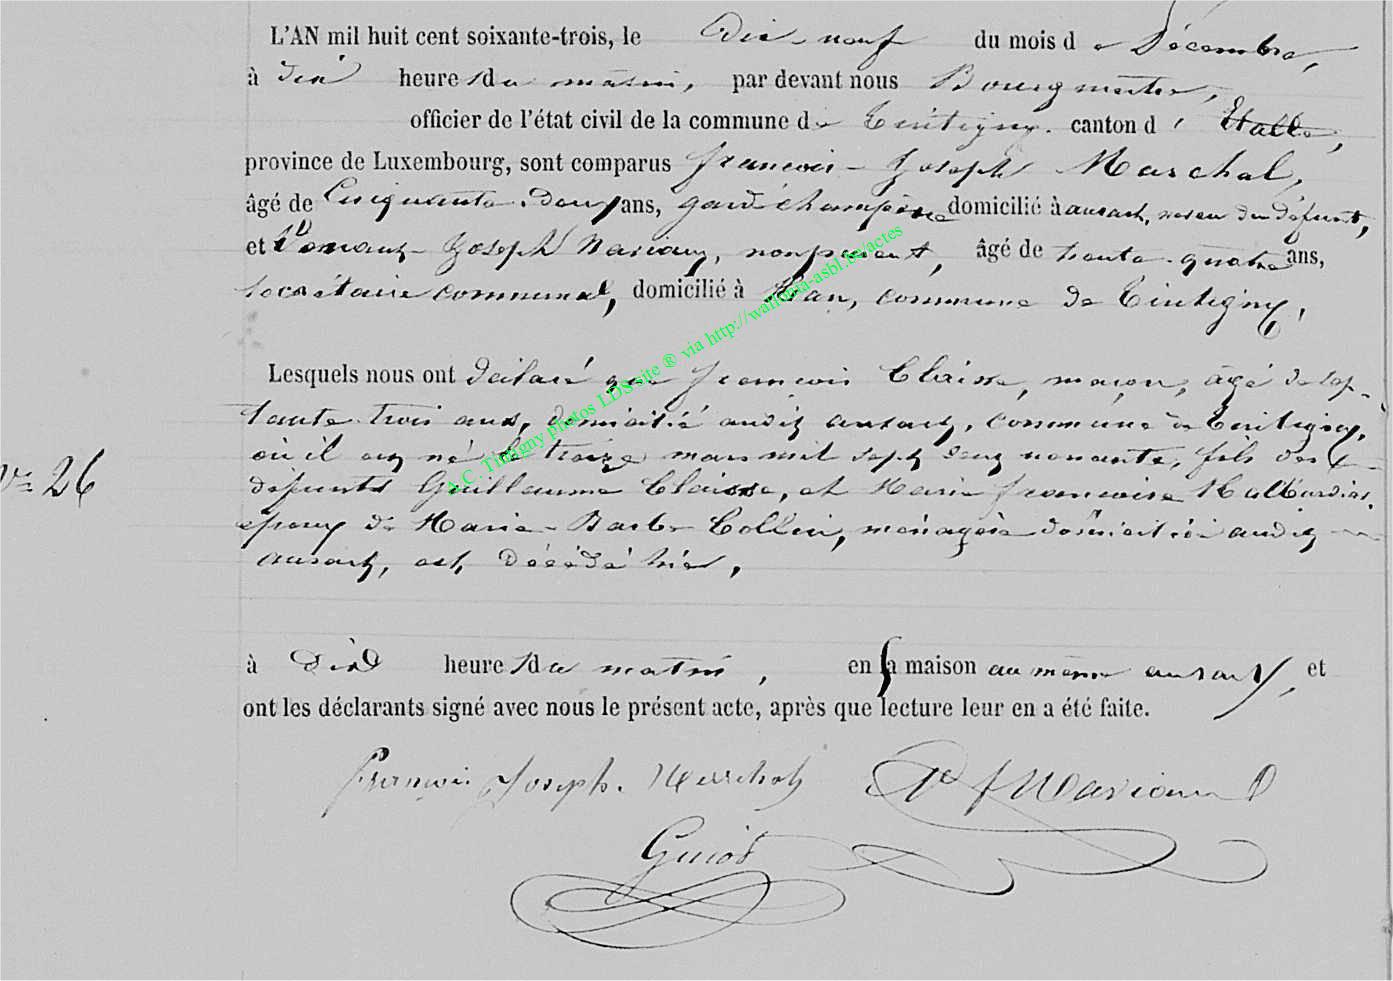 L'AN mil huit cent soixante-trois, le Dix-neuf du mois de Décembre,
à dix heures du matin, par devant nous Bourgmestre,
officier de l'état civil de la commune de Tintigny. canton d' Etalle,
province de Luxembourg, sont comparus François-Joseph Marschal,
âgé de Cinquante-deux ans, garde champêtre domicilié à ansart, neveu du défunt,
et Joseph Mariaux, non parent, âgé de trente-quatre ans,
secrétaire communal, domicilié à Han, commune de Tintigny,
Lesquels nous ont déclaré que françois Claisse, maçon, âgé de sep-
tante trois ans, domicilié audit ansart, commune de Tintigny,
où il est né le treize mars mil sept cent nonante, fils des
défunts Guillaume Claisse, et Marie françoise
époux de Marie-Barbe Collin, ménagère domiciliée audit
ansart, est décédé hier,
N° 26
à dix heures du matin, en sa maison au même ansart, et
ont les déclarants signé avec nous le présent acte, après que lecture leur en a été faite.
François Joseph. Merschal Mariaux
Guiot
A.C. Tintigny photos LDS site ® via http://wallonia-asbl.be/actes